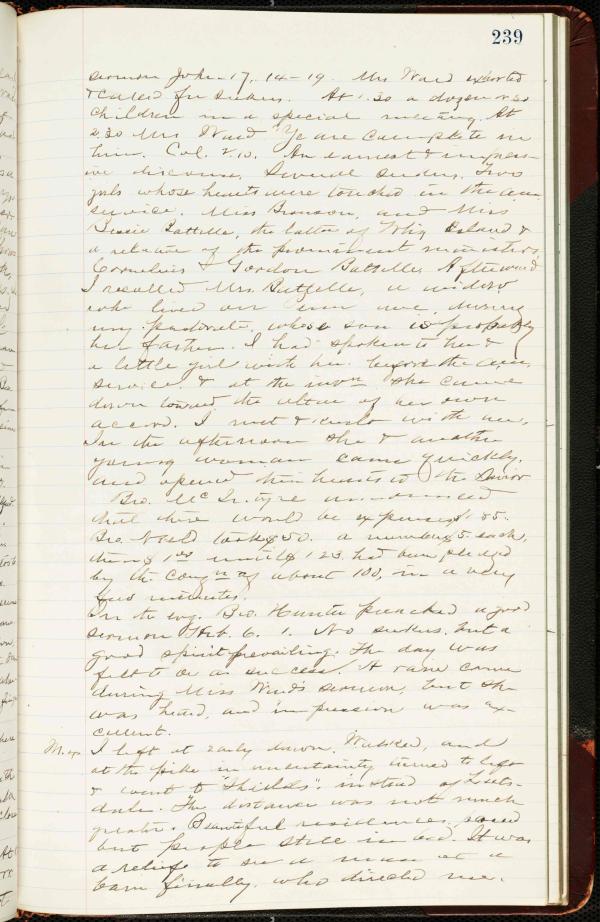 239
sermon John 17, 14-19. Mrs Ward exhorted
& called for seekers. At 1.30 a dozen or so
children in a special meeting. At
2.30 Mrs Ward "Ye are complete in
him. Col. 2.10. An earnest & impress-
ive discourse. Several seekers. Two
girls whose hearts were touched in the a.m.
service. Miss Bronson, and Miss
Bessie Battelle, the latter of &
a relative of the prominent ministers,
Cornelius & Gordon Battelle. Afterward
I recalled Mrs. Battelle, a widow
who lived during
my pastorate, whose son is properly
her father. I had spoken to her &
a little girl with her before the a.m.
service, & at the she came
down toward the altar of her own
accord. I met & knelt with her.
In the afternoon she & another
young woman came quickly,
and opened their hearts to the Savior
Bro. McIntyre announced
that there would be expenses 85.
Bro. took $50. a number $5. each,
then $1 until $123. had been pledged
by the Cong of about 100, in a very
few minutes.
In the evg. Bro. Hunter preached a good
sermon Heb. 6. 1. No seekers, but a
good spirit prevailing. The day was
felt to be a success. A rain came
during Miss Ward's sermon, but she
was heard, and impression was ex-
cellent.
I left at early dawn. Walked, and
at the pike in uncertainty turned to left
& went to "Shields" instead of Leets-
dale. The distance was not much
greater. Beautiful residences, passed
but people still in bed. It was
a relief to see a man at a
barn finally, who directed me.